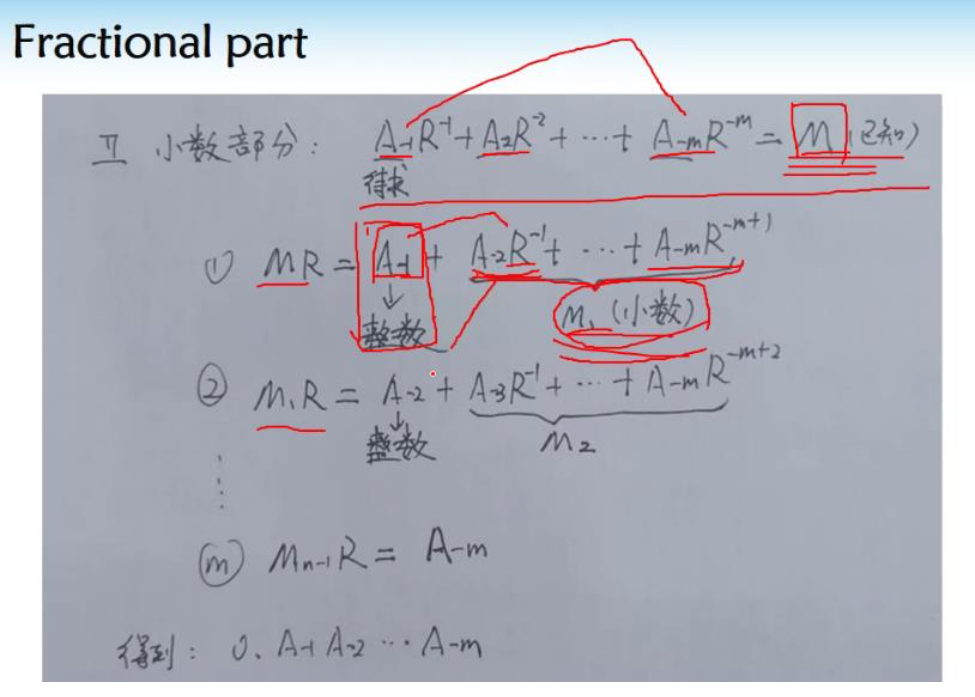 Fractional part
Ⅱ 小数部分: A₋₁R⁻¹+A₋₂R⁻²+⋯+A₋ₘR⁻ᵐ=M(已知)
待求
① MR=A₋₁+A₋₂R⁻¹+⋯+A₋ₘR⁻ᵐ⁺¹
↓
整数 M₁(小数)
② M₁R=A₋₂+A₋₃R⁻¹+⋯+A₋ₘR⁻ᵐ⁺²
↓
整数 M₂
⋮
ⓜ Mₙ₋₁R=A₋ₘ
得到: 0.A₋₁A₋₂⋯A₋ₘ